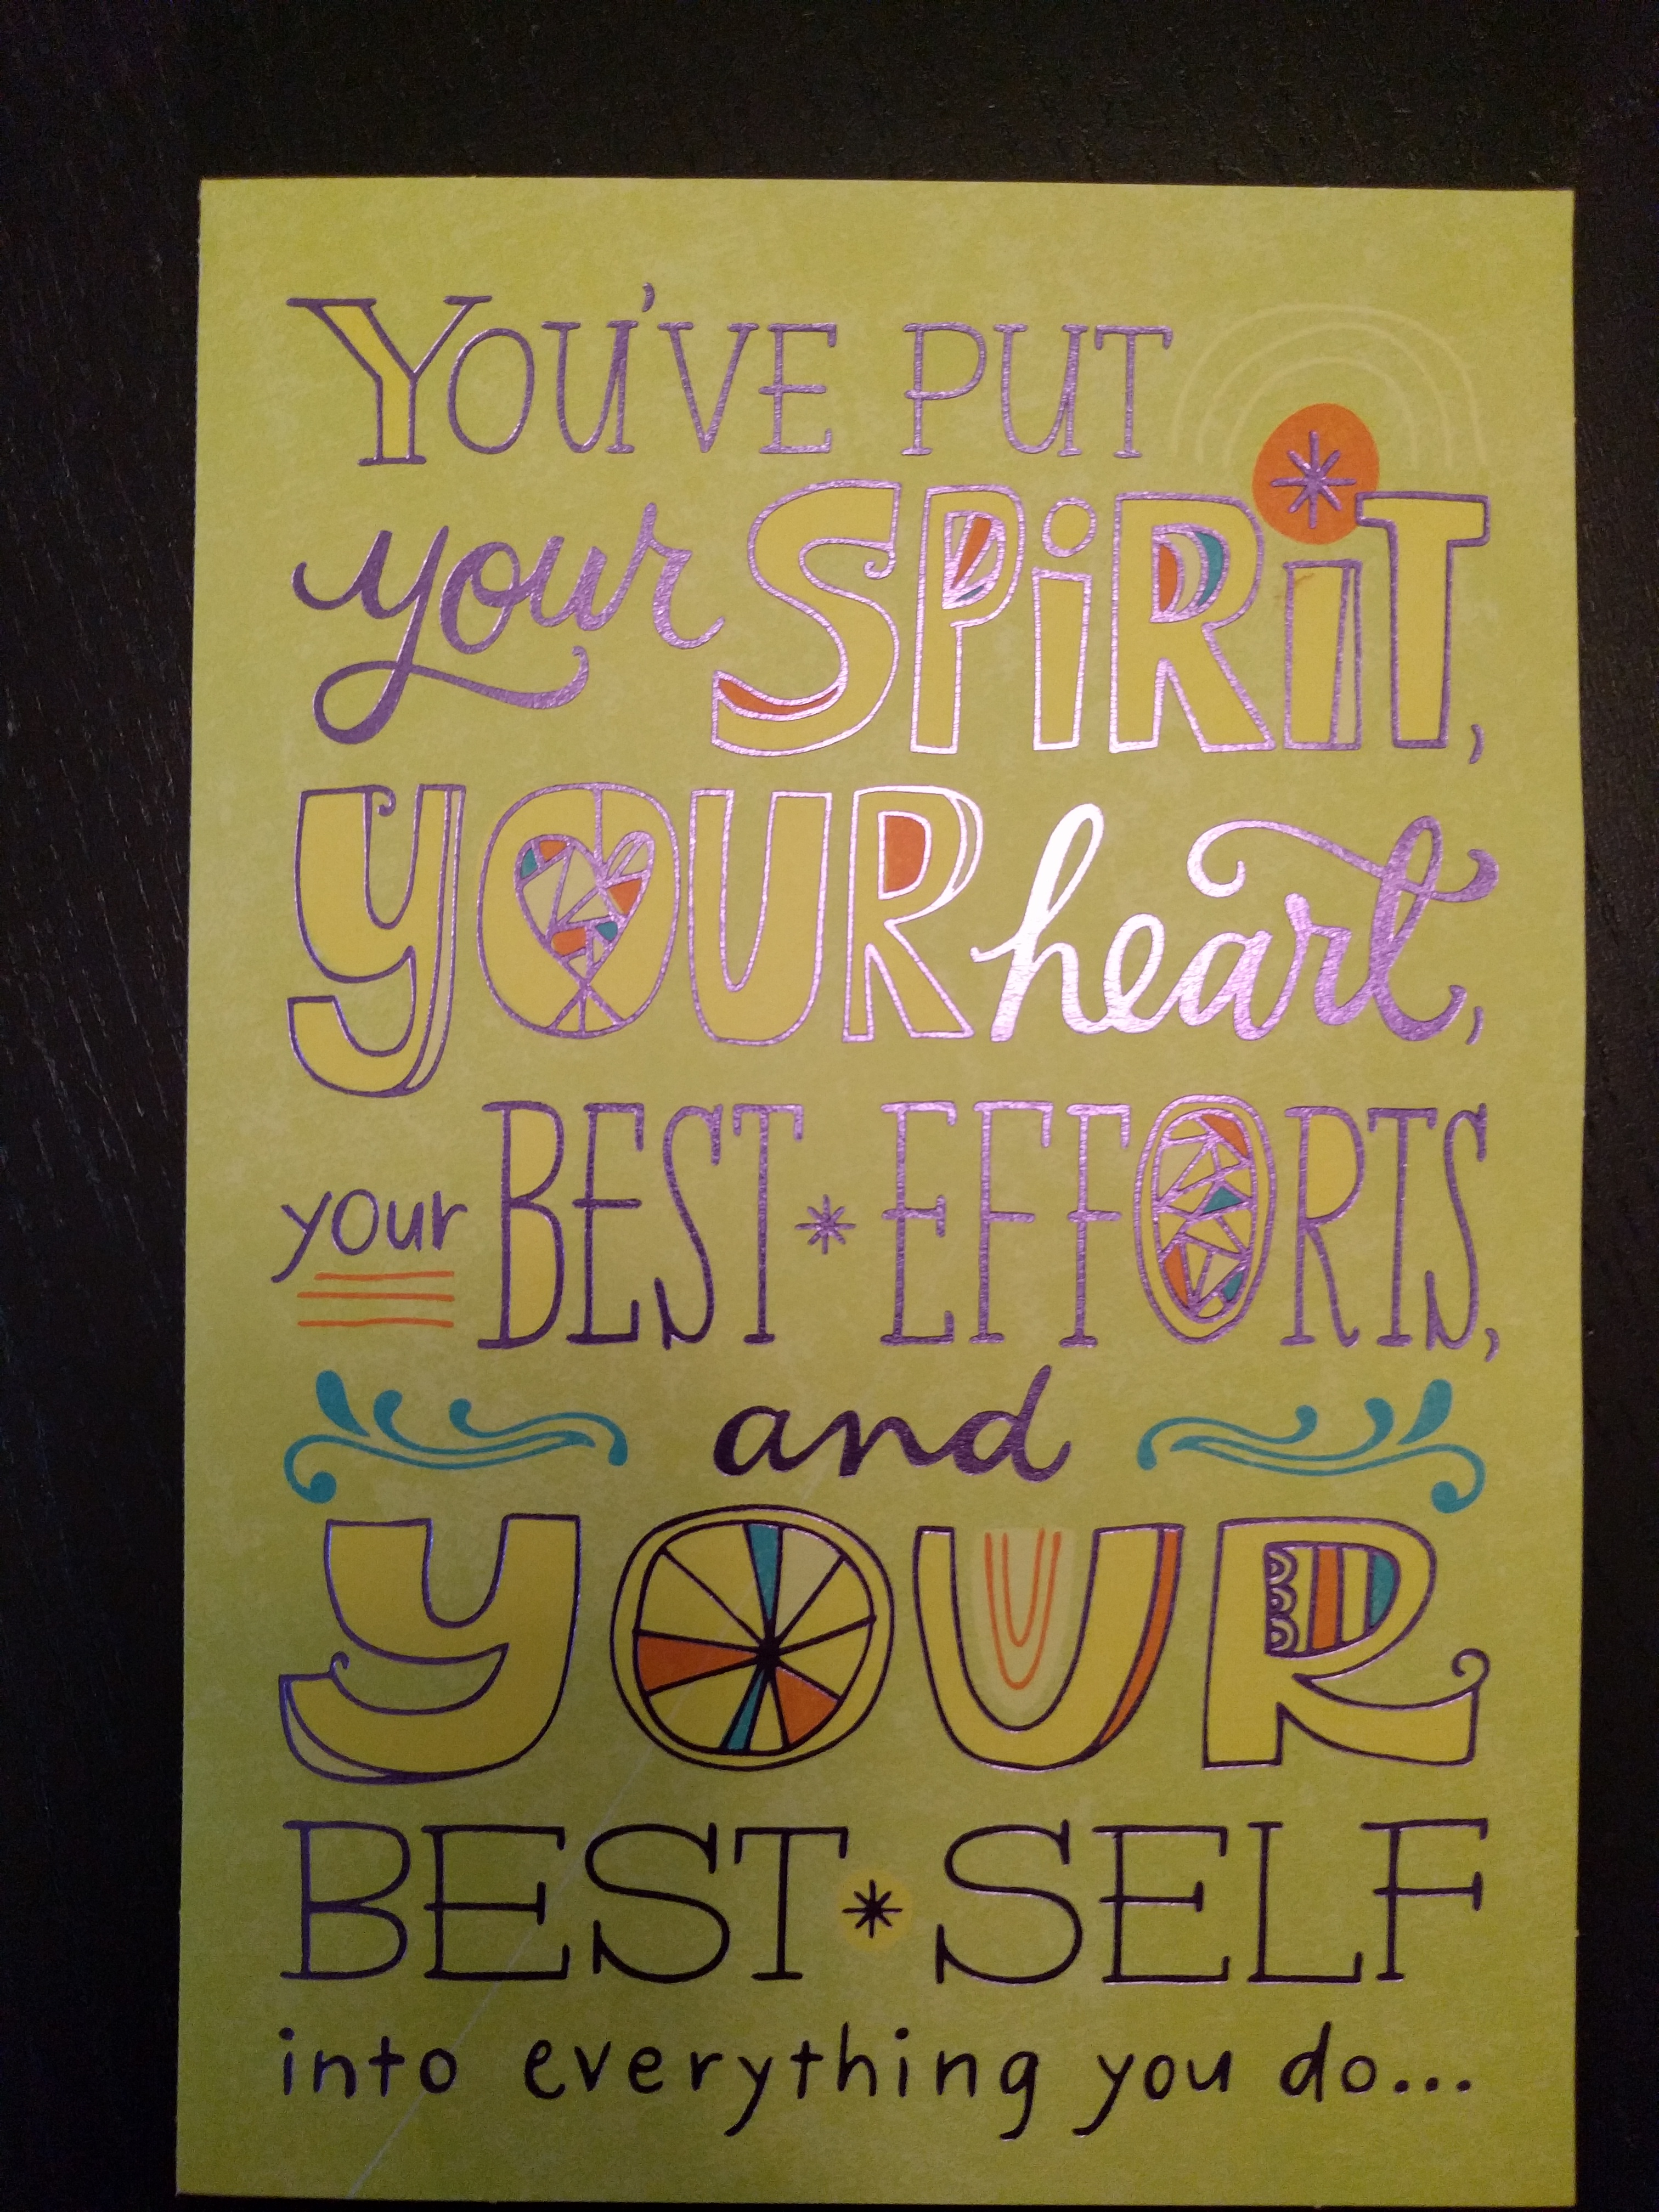 YOU'VE PUT
your SPiRiT,
YOUR heart,
your BEST * EFFORTS,
and
YOUR
BEST * SELF
into everything you do...